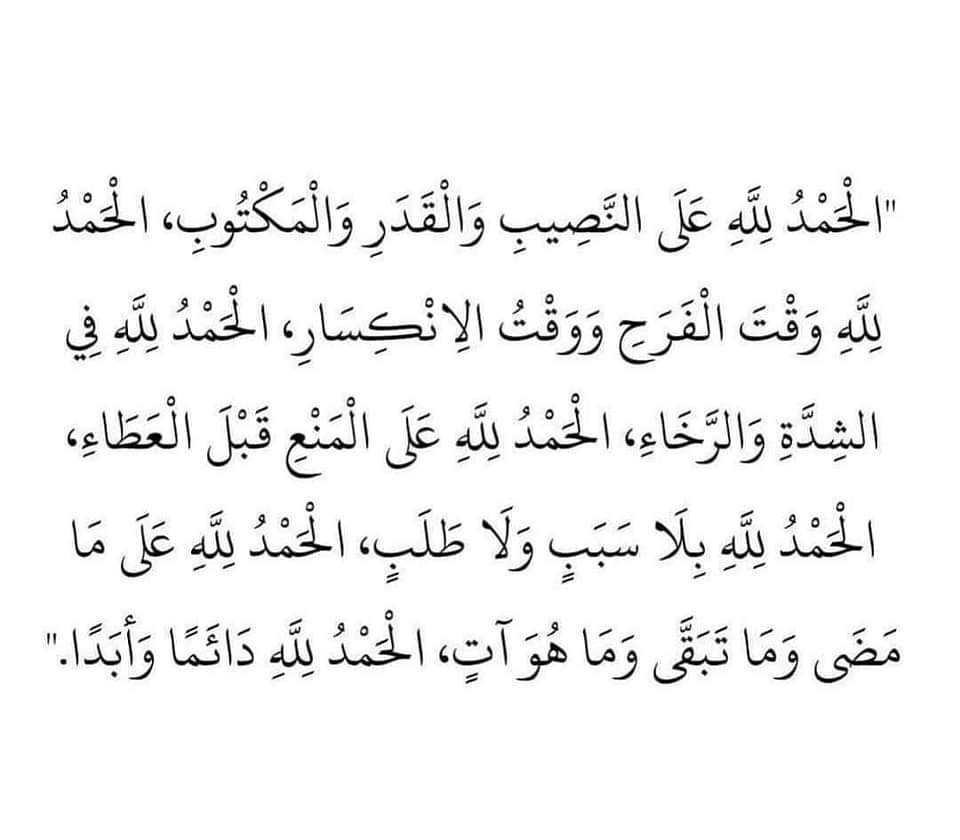 "الْحَمْدُ لِلَّهِ عَلَى النَّصِيبِ وَالْقَدَرِ وَالْمَكْتُوبِ، الْحَمْدُ
لِلَّهِ وَقْتَ الْفَرَحِ وَوَقْتُ الِانْكِسَارِ، الْحَمْدُ لِلَّهِ فِي
الشِدَّةِ وَالرَّخَاءِ، الْحَمْدُ لِلَّهِ عَلَى الْمَنْعِ قَبْلَ الْعَطَاءِ،
الْحَمْدُ لِلَّهِ بِلَا سَبَبٍ وَلَا طَلَبٍ، الْحَمْدُ لِلَّهِ عَلَى مَا
مَضَى وَمَا تَبَقَّى وَمَا هُوَ آتٍ، الْحَمْدُ لِلَّهِ دَائَمًا وَأَبَدًا."